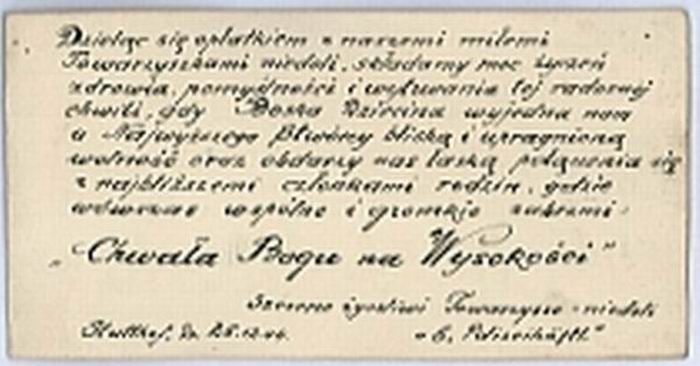 Dzieląc się opłatkiem z naszemi miłemi
Towarzyszkami niedoli, składamy moc życzeń
zdrowia, pomyślności i wytrwania tej radosnej
chwili, gdy Boska Dziecina wyjedna nam
u Najwyższego Stwórcy bliską i upragnioną
wolność oraz obdarzy nas łaską połączenia się
z najbliższemi członkami rodzin, gdzie
wówczas wspólne i gromkie zabrzmi:
„Chwała Bogu na Wysokości"
Szczerze życzliwi Towarzysze-niedoli
Stutthof, dn. 12.44.